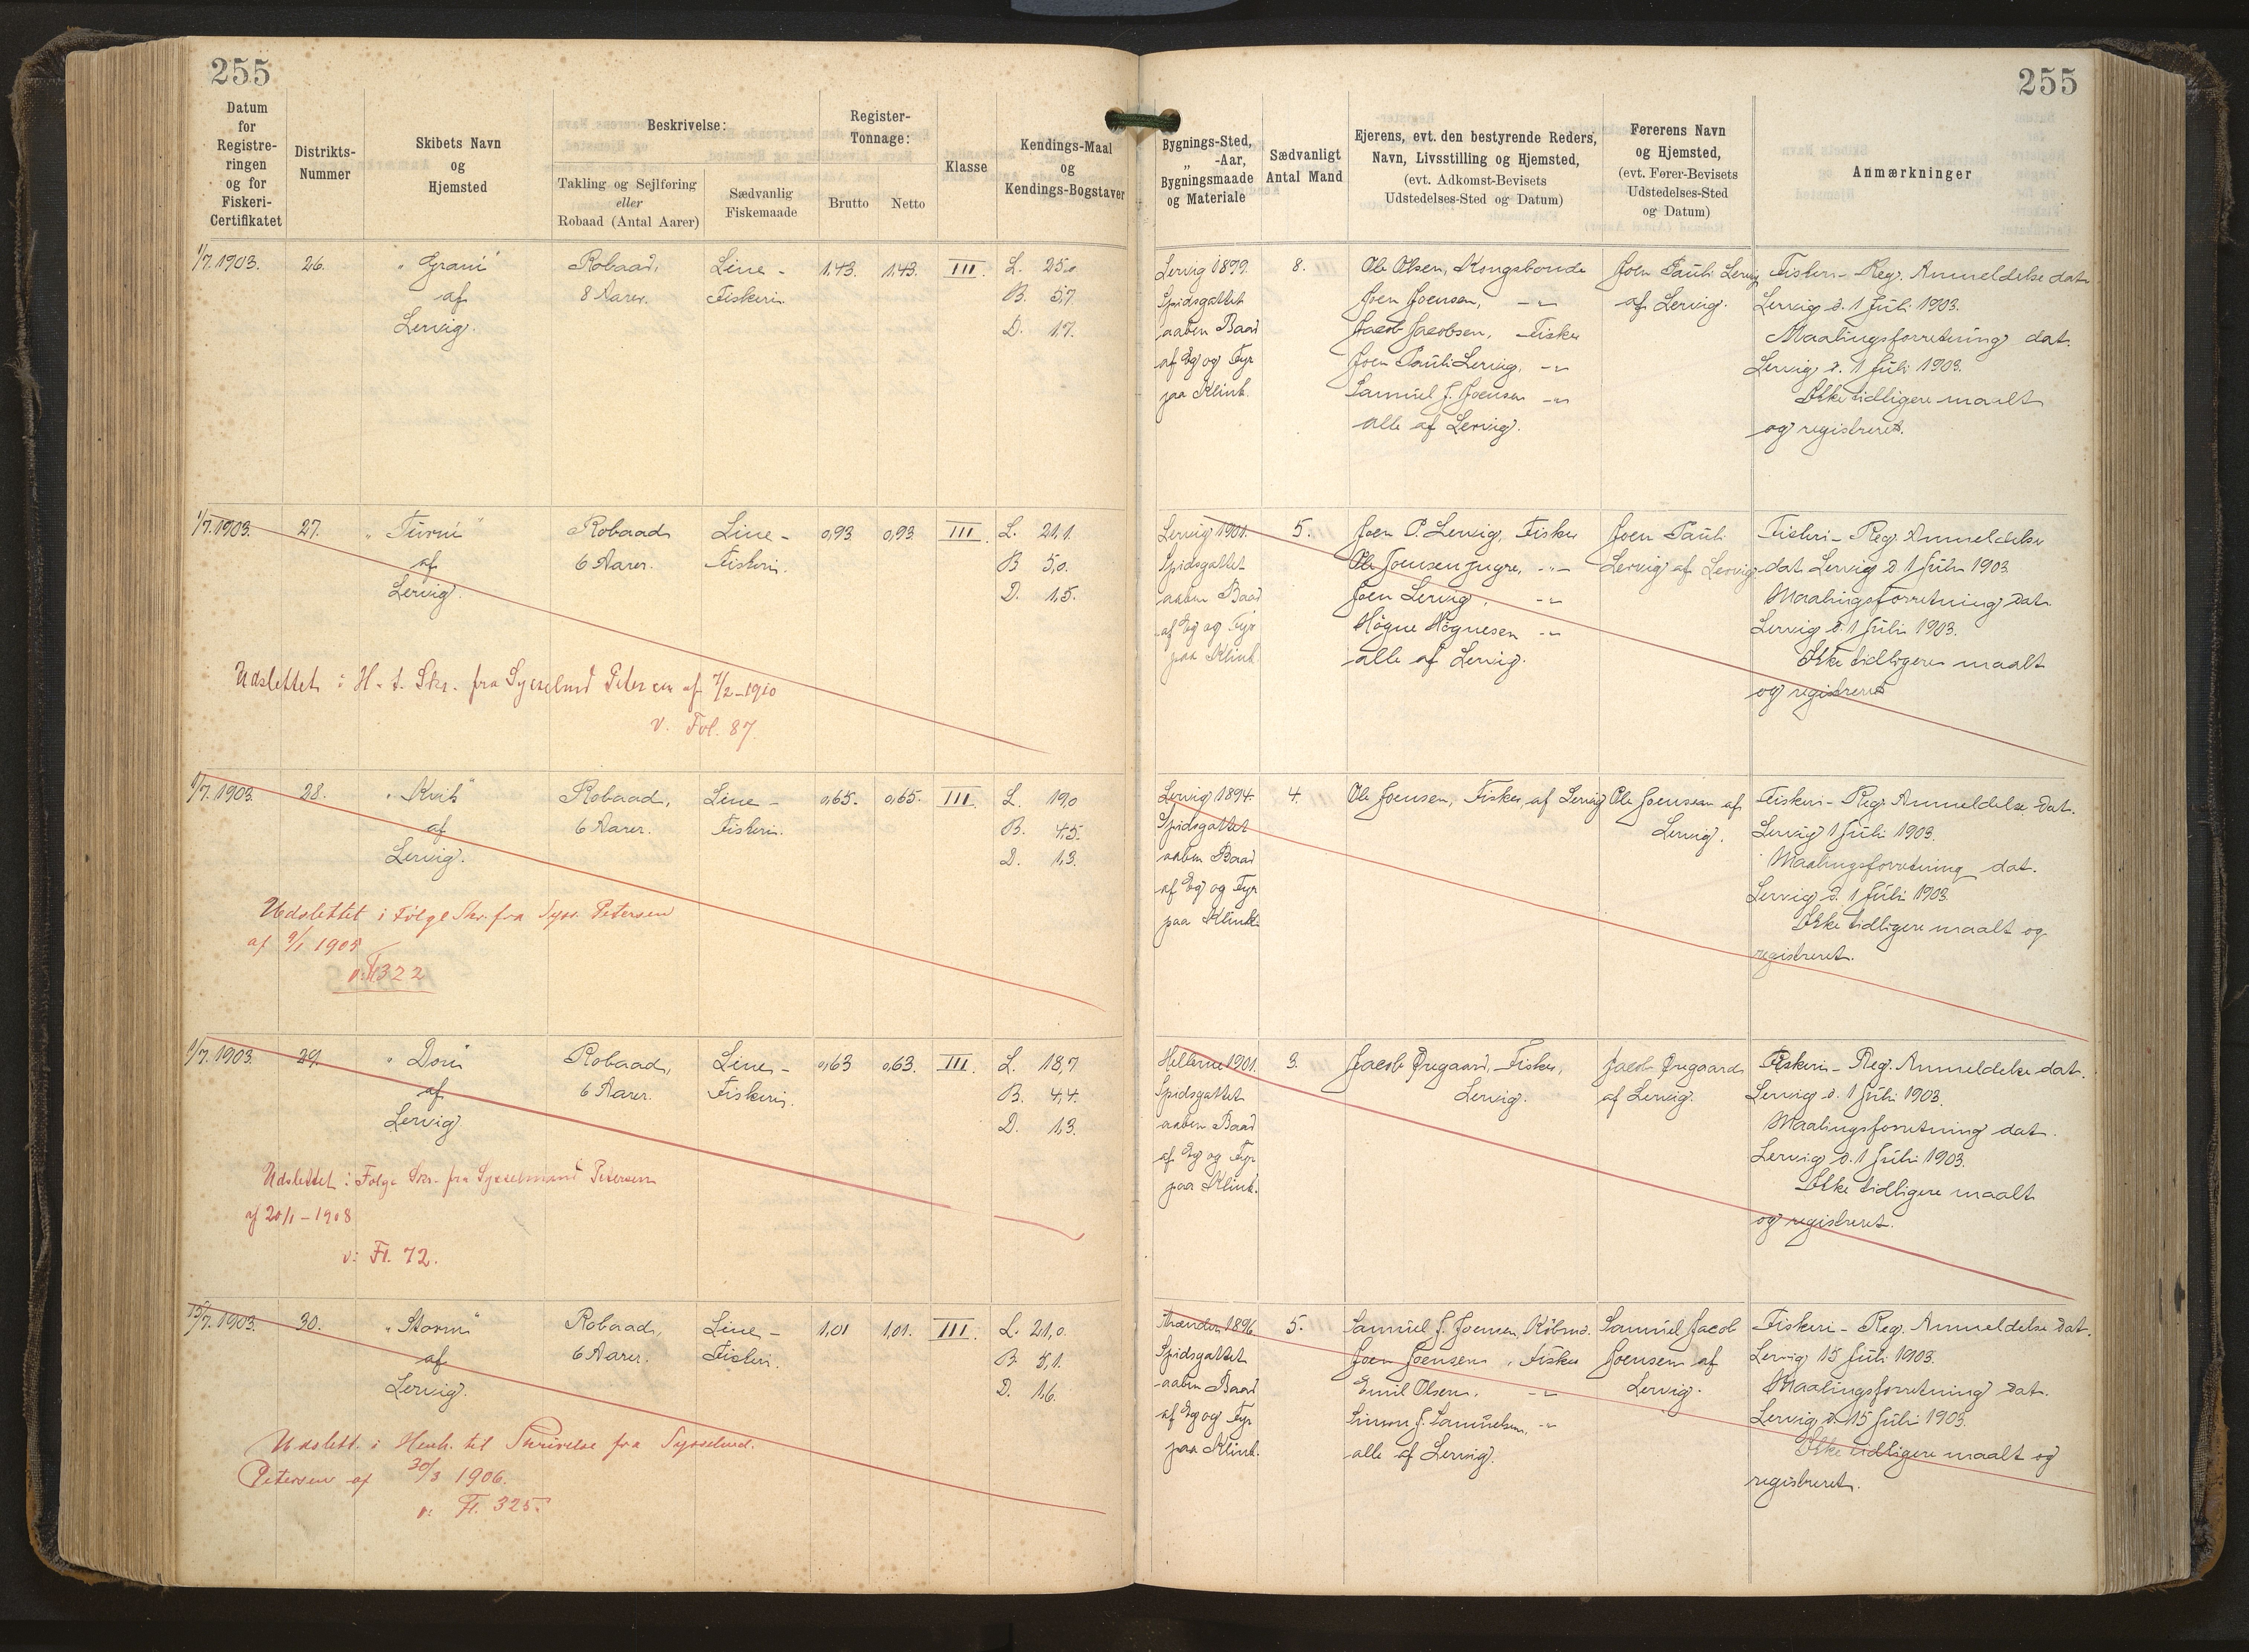 255
255
Datum for Registreringen og for Fiskeri-Certifikatet
Distrikts-Nummer
Skibets Navn og Hjemsted
Beskrivelse:
Takling og Sejlføring eller Robaad (Antal Aarer)
Sædvanlig Fiskemaade
Register-Tonnage:
Brutto
Netto
Klasse
Kendings-Maal og Kendings-Bogstaver
Bygnings-Sted, „ -Aar, Bygningsmaade og Materiale
Sædvanligt Antal Mand
Ejerens, evt. den bestyrende Reders, Navn, Livsstilling og Hjemsted, (evt. Adkomst-Bevisets Udstedelses-Sted og Datum)
Førerens Navn og Hjemsted, (evt. Fører-Bevisets Udstedelses-Sted og Datum)
Anmærkninger
1/7. 1903.
26.
„Grani“
af
Lervig.
Robaad,
8 Aarer.
Line-
Fiskeri.
1,43.
1,43.
III.
L. 25,0
B. 5,7
D. 1,7.
Lervig 1899.
Spidsgattet
aaben Baad
af Eg og Fyr
paa Klink.
8.
Ole Olsen, Kongsbonde
Joen Joensen, -"-
Jacob Jacobsen, Fisker
Joen Pauli Lervig, -"-
Samuel J. Joensen -"-
alle af Lervig.
Joen Pauli Lervig
af Lervig.
Fiskeri-Reg. Anmeldelse dat.
Lervig d. 1 Juli 1903.
Maalingsforretning dat.
Lervig d. 1 Juli 1903.
Ikke tidligere maalt
og registreret.
1/7. 1903.
27.
af
Lervig.
Robaad
6 Aarer.
Line-
Fiskeri.
0,93
0,93
III.
L. 21,1.
B 5,0.
D. 1,5.
Udslettet i H. t. Skr. fra Sysselmd Petersen af 7/2-1910
v. Fol. 87.
Lervig 1901.
Spidsgattet
aaben Baad
af Eg og Fyr
paa Klink.
5.
Joen P. Lervig, Fisker
Ole Joensen yngre, -"-
Joen Lervig, -"-
Høgne Høgnesen -"-
alle af Lervig.
Joen Pauli
Lervig af Lervig
Fiskeri-Reg. Anmeldelse
dat. Lervig d. 1 Juli 1903
Maalingsforretning dat.
Lervig d. 1 Juli 1903.
Ikke tidligere maalt
og registreret
1/7. 1903.
28.
„Kvik“
af
Lervig.
Robaad,
6 Aarer.
Line-
Fiskeri.
0,65.
0,65.
III.
L. 19,0
B. 4,5.
D. 1,3.
Udslettet i Følge Skr. fra Syss. Petersen
af 9/1 1905
v: Fl 322
Lervig 1894.
Spidsgattet
aaben Baad
af Eg og Fyr
paa Klink
4.
Ole Joensen, Fisker, af Lervig
Ole Joensen af
Lervig.
Fiskeri-Reg. Anmeldelse dat.
Lervig 1 Juli 1903.
Maalingsforretning dat.
Lervig d. 1 Juli 1903.
Ikke tidligere maalt og
registreret.
1/7. 1903.
29.
af
Lervig
Robaad,
6 Aarer.
Line-
Fiskeri.
0,63
0,63.
III.
L. 18,7
B. 4,4.
D. 1,3.
Udslettet i Følge Skr. fra Sysselmand Petersen
af 20/1-1908
v: Fl. 72.
Hellerne 1901.
Spidsgattet
aaben Baad
af Eg og Fyr
paa Klink.
3.
Jacob Øregaard, Fisker,
Lervig.
Jacob Øregaard
af Lervig.
Fiskeri-Reg. Anmeldelse dat.
Lervig d. 1 Juli 1903.
Maalingsforretning dat.
Lervig d. 1 Juli 1903.
Ikke tidligere maalt
og registreret.
15/7. 1903.
30.
„Storm“
af
Lervig.
Robaad,
6 Aarer.
Line-
Fiskeri.
1,01
1,01.
III.
L. 21,0.
B. 5,1.
D. 1,6.
Udslett. i Henh. til Skrivelse fra Sysselmd.
Petersen af 30/3 1906.
v: Fl. 325.
1896
Spidsgattet
aaben Baad
af Eg og Fyr
paa Klink.
5.
Samuel J. Joensen, Købmd.
Joen Joensen, Fisker
Emil Olsen, -"-
Simon J. Samuelsen, -"-
alle af Lervig.
Samuel Jacob
Joensen af
Lervig.
Fiskeri-Reg. Anmeldelse dat.
Lervig 15 Juli 1903.
Maalingsforretning dat.
Lervig d. 15 Juli 1903.
Ikke tidligere maalt og
registreret.